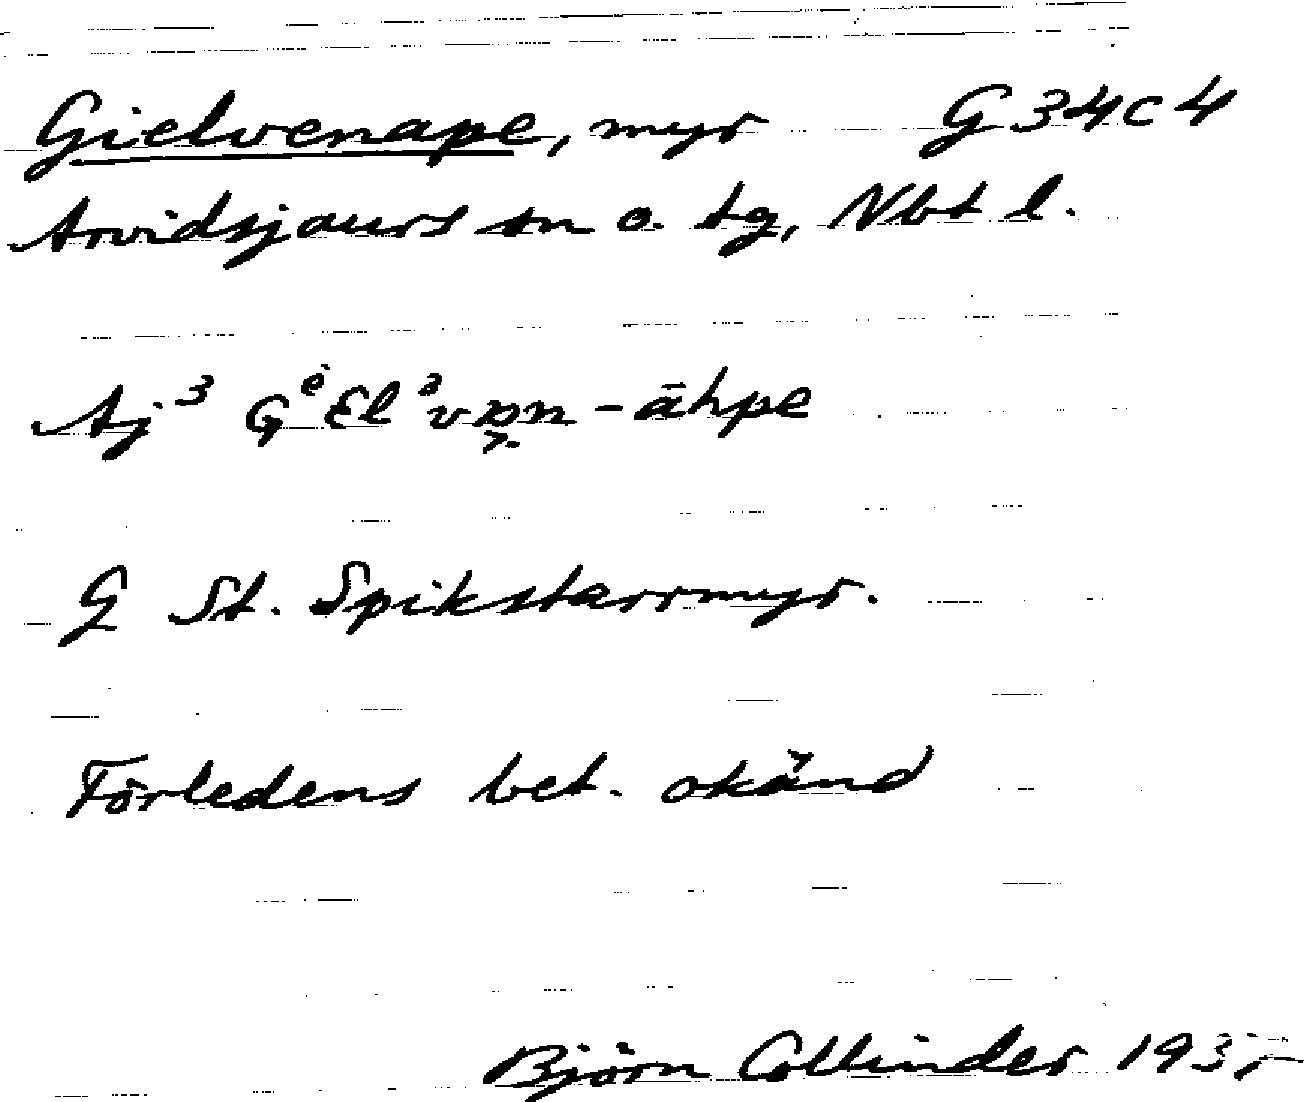 Gielvenape, myr G 34 c 4
Arvidsjaurs sn o. tg, Nbt l.
Aj 3 -āhpe
G St. Spikstarrmyr.
Förledens bet. okänd
Björn Collinder